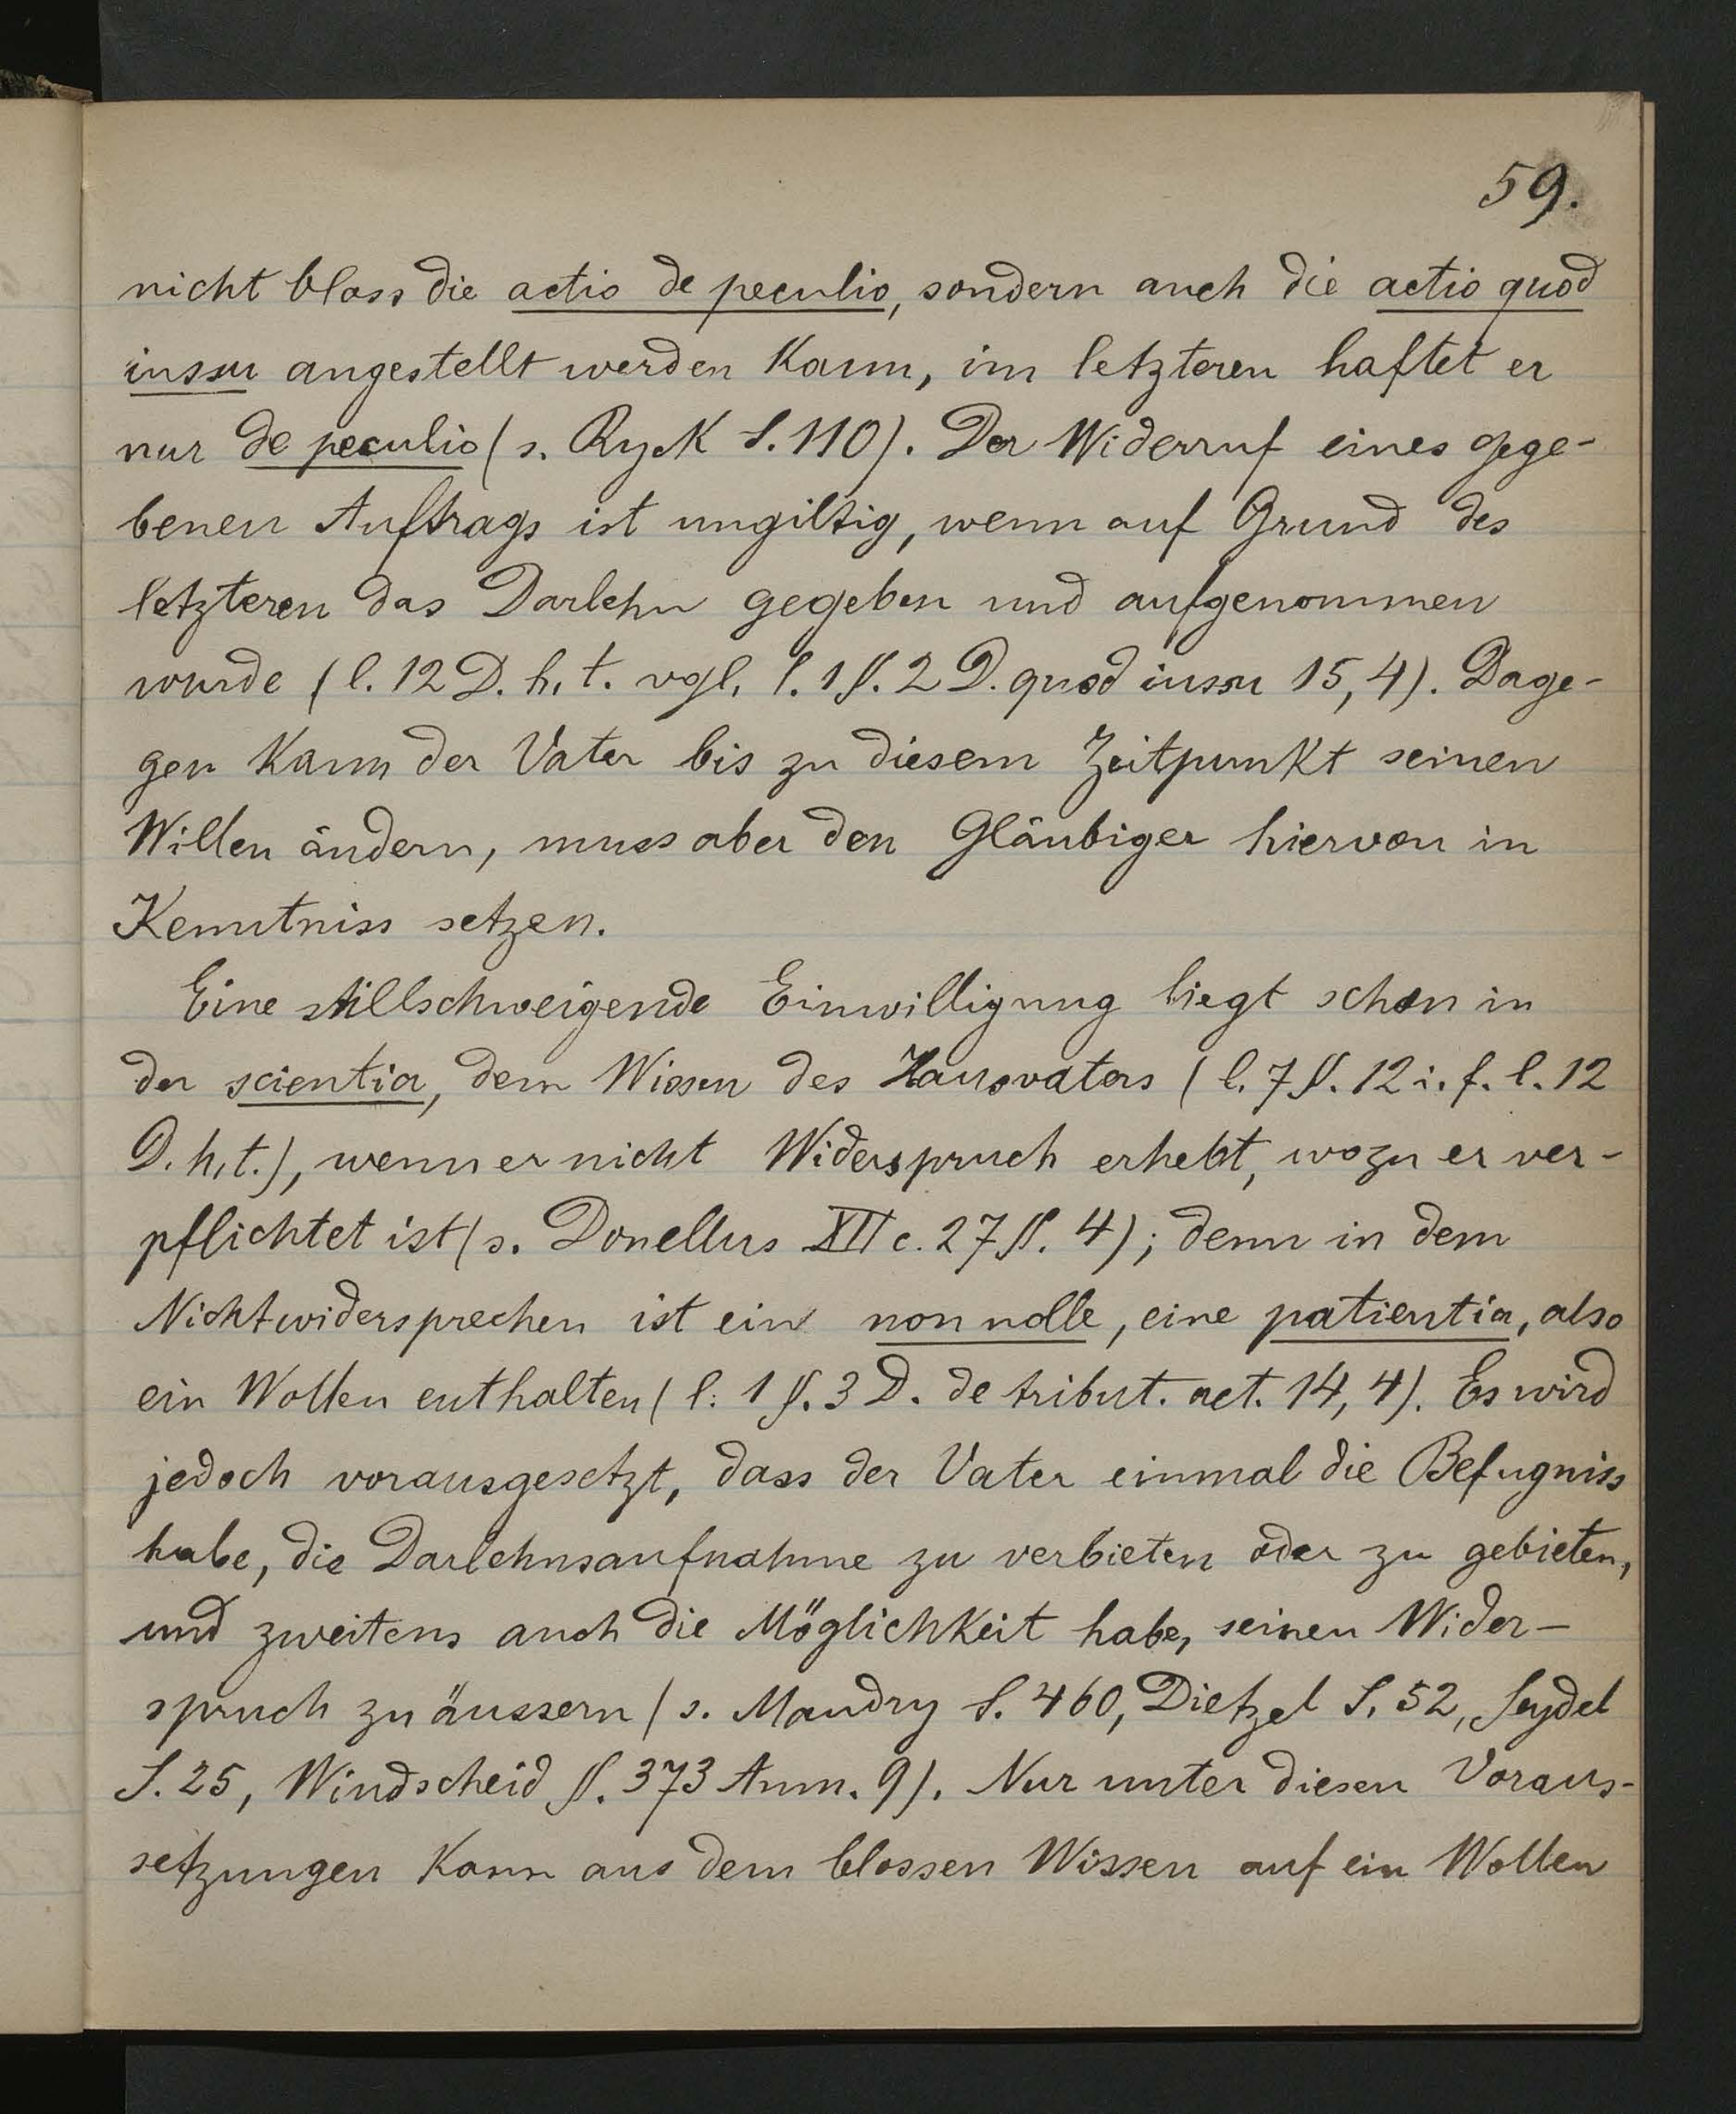 59.
nicht bloss die actio de peculio, sondern auch die actio quod
iussu angestellt werden kann, im letzteren haftet er
nur de peculio (s. Ryck S. 110). Der Widerruf eines gege-
benen Auftrags ist ungiltig, wenn auf Grund des
letzteren das Darlehn gegeben und aufgenommen
wurde (l. 12 D. h. t. vgl. l. 1 §. 2 D. quod iussu 15, 4). Dage-
gen kann der Vater bis zu diesem Zeitpunkt seinen
Willen ändern, muss aber den Gläubiger hiervon in
Kenntniss setzen.
Eine stillschweigende Einwilligung liegt schon in
der scientia, dem Wissen des Hausvaters (l. 7 §. 12 i. f. l. 12
D. h. t.), wenn er nicht Widerspruch erhebt, wozu er ver-
pflichtet ist (s. Donellus XII c. 27 §. 4); denn in dem
Nichtwidersprechen ist ein non nolle, eine patientia, also
ein Wollen enthalten (l. 1 §. 3 D. de tribut. act. 14, 4). Es wird
jedoch vorausgesetzt, dass der Vater einmal die Befugniss
habe, die Darlehnsaufnahme zu verbieten oder zu gebieten,
und zweitens auch die Möglichkeit habe, seinen Wider-
spruch zu äussern (s. Mandry S. 460, Dietzel S. 52, Seydel
S. 25, Windscheid §. 373 Anm. 9). Nur unter diesen Voraus-
setzungen kann aus dem blossen Wissen auf ein Wollen